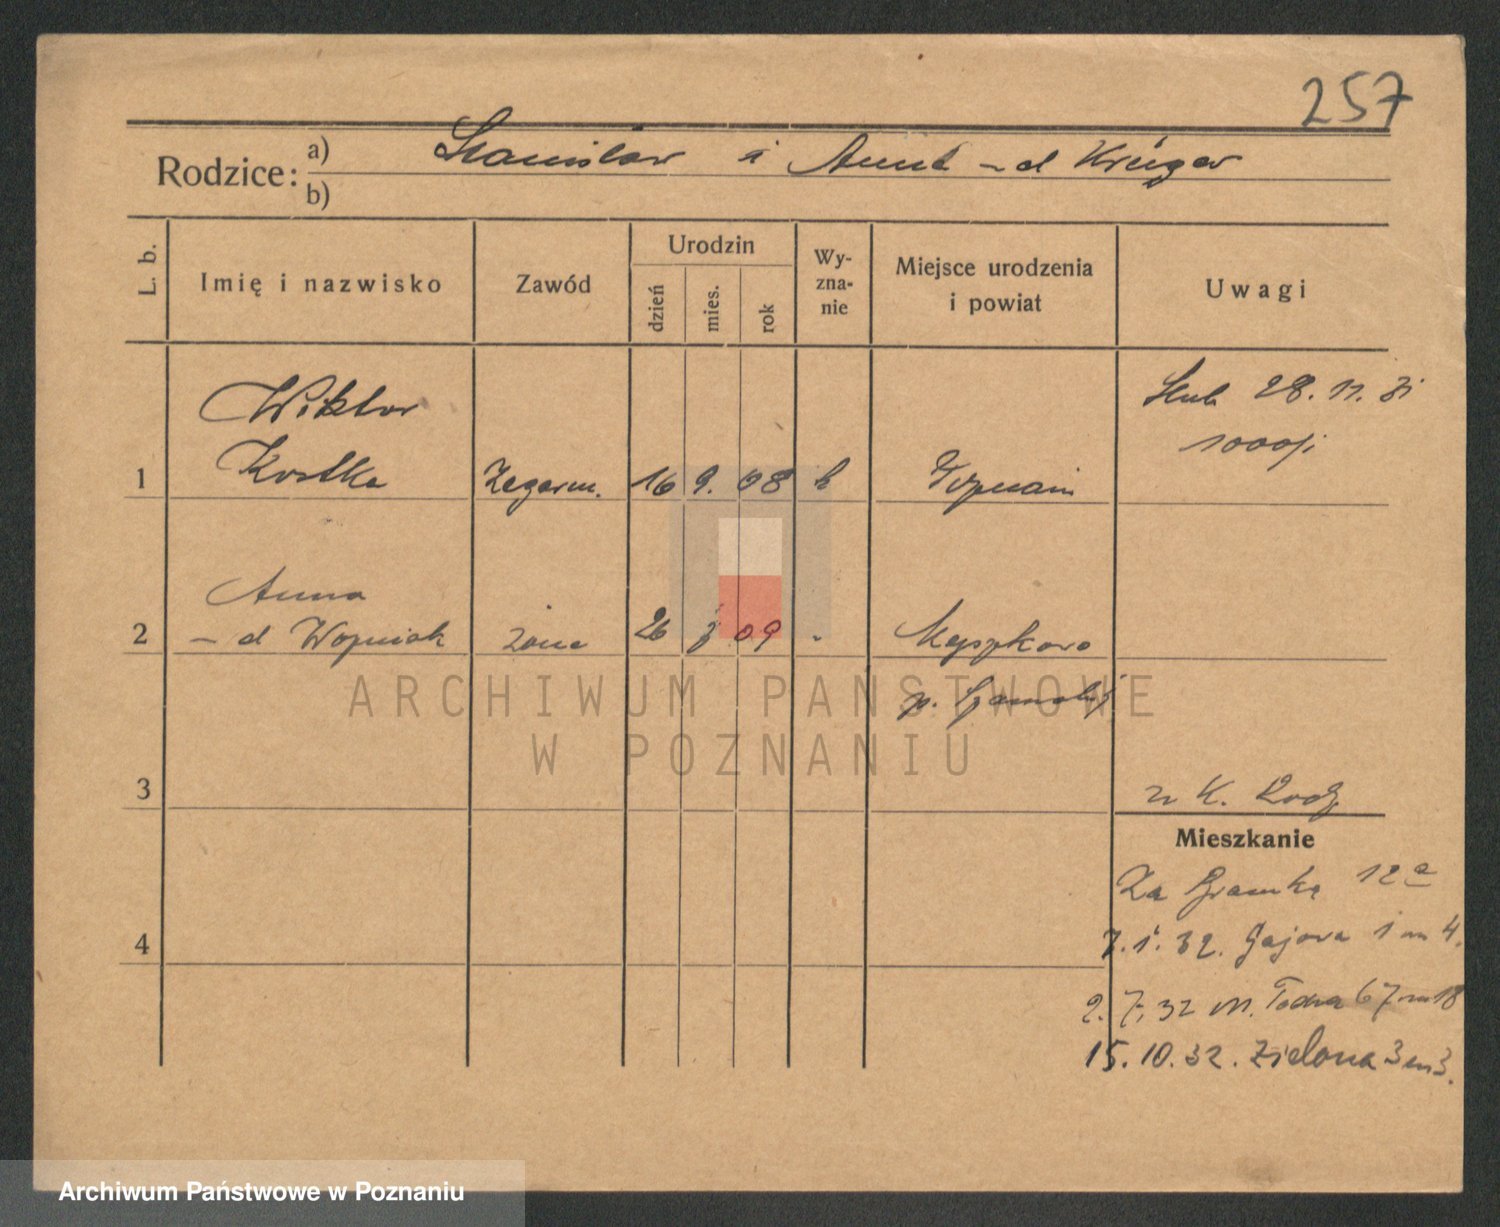 257
Rodzice: a) Stanisław i Anna -d Krüger
b)
L. b.
Imię i nazwisko
Zawód
Urodzin
dzień
mies.
rok
Wy-
zna-
nie
Miejsce urodzenia
i powiat
Uwagi
Wiktor
Kostka
1
Zegarm.
16 9. 08
Poznań
Ślub 28. 11. 31
Anna
2
-d Woźniak
żona
26
09
"
Myszkowo
p. Szamotuły
3
u K. Rodz
Mieszkanie
Za Bramką 12a
4
7. 1. 32. Gajowa 1 m 4.
2. 7. 32 M. Focha 67 m 18
15. 10. 32. Zielona 3 m 3.
ARCHIWUM PAŃSTWOWE
W POZNANIU
Archiwum Państwowe w Poznaniu